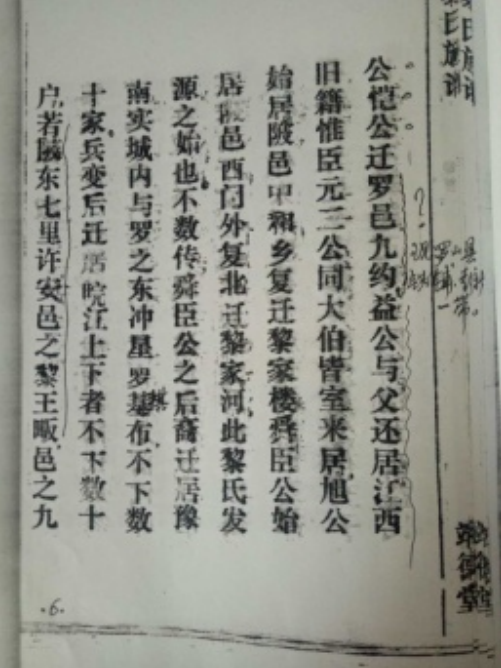 黎氏族谱
公恺公迁罗邑九约益公与父还居江西
旧籍惟臣元三公同大伯皆室来居旭公
始居陂邑中和乡复迁黎家楼舜臣公始
居陂邑西门外复北迁黎家河此黎氏发
源之始也不数传舜臣公之后裔迁居豫
南实城内与罗之东冲星罗棋布不下数
十家兵变后迁居皖江上下者不下数十
户若关东七里许安邑之黎王畈邑之九
?
罗山县
一带。
.6.